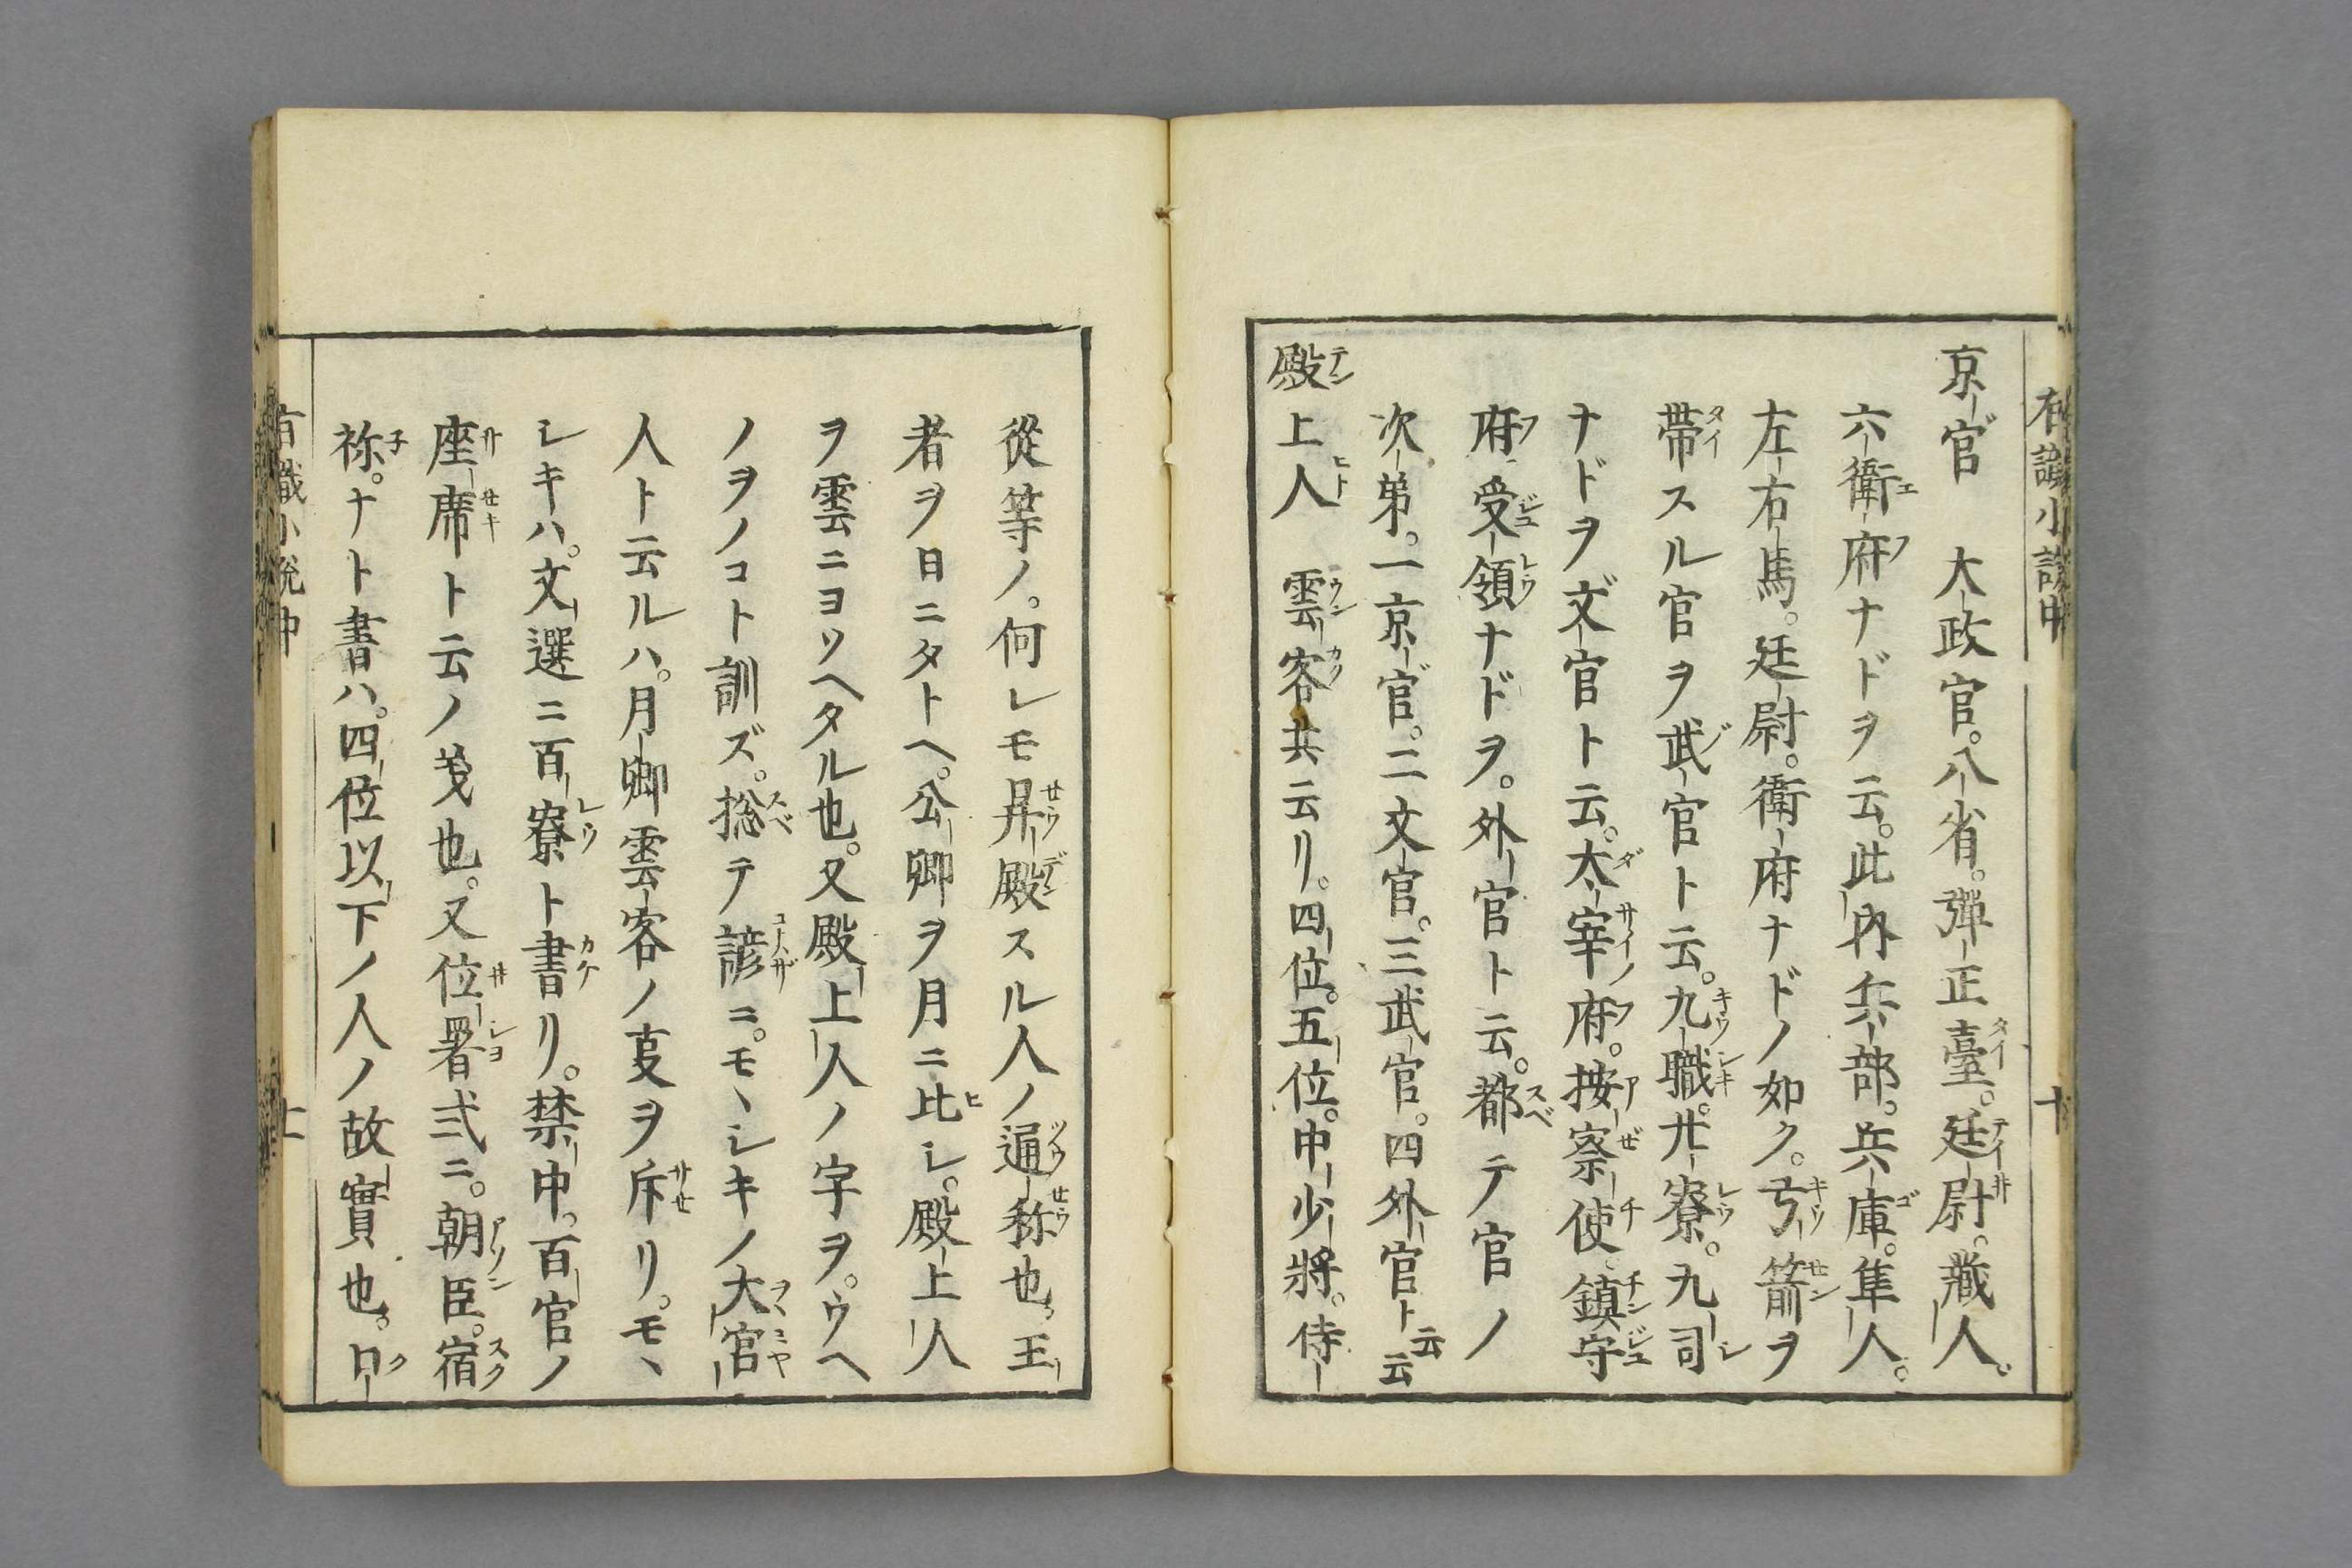 京官　大政官。八省。彈正臺。廷尉。藏人。
六衛府ナドヲ云。此內兵部。兵庫。隼人。
左右馬。廷尉。衛府ナドノ如ク。弓箭ヲ
帶スル官ヲ武官ト云。九職。廿寮。九司
ナドヲ文官ト云。大宰府。按察使。鎮守
府受領ナドヲ。外官ト云。都テ官ノ
次第。一京官。二文官。三武官。四外官ト云云
殿上人　雲客共云リ。四位。五位。中少將。侍
從等ノ。何レモ昇殿スル人ノ通称也。王
者ヲ日ニタトヘ。公卿ヲ月ニ比シ。殿上人
ヲ雲ニヨソヘタル也。又殿上人ノ字ヲ。ウヘ
ノヲノコト訓ズ。捴テ諺ニ。モヽシキノ大宮
人ト云ルハ。月卿雲客ノ㕝ヲ斥リ。モヽ
シキハ。文選ニ百寮ト書リ。禁中。百官ノ
座席ト云ノ義也。又位署式ニ。朝臣。宿
祢。ナト書ハ。四位以下ノ人ノ故實也。口
有職小說中
十